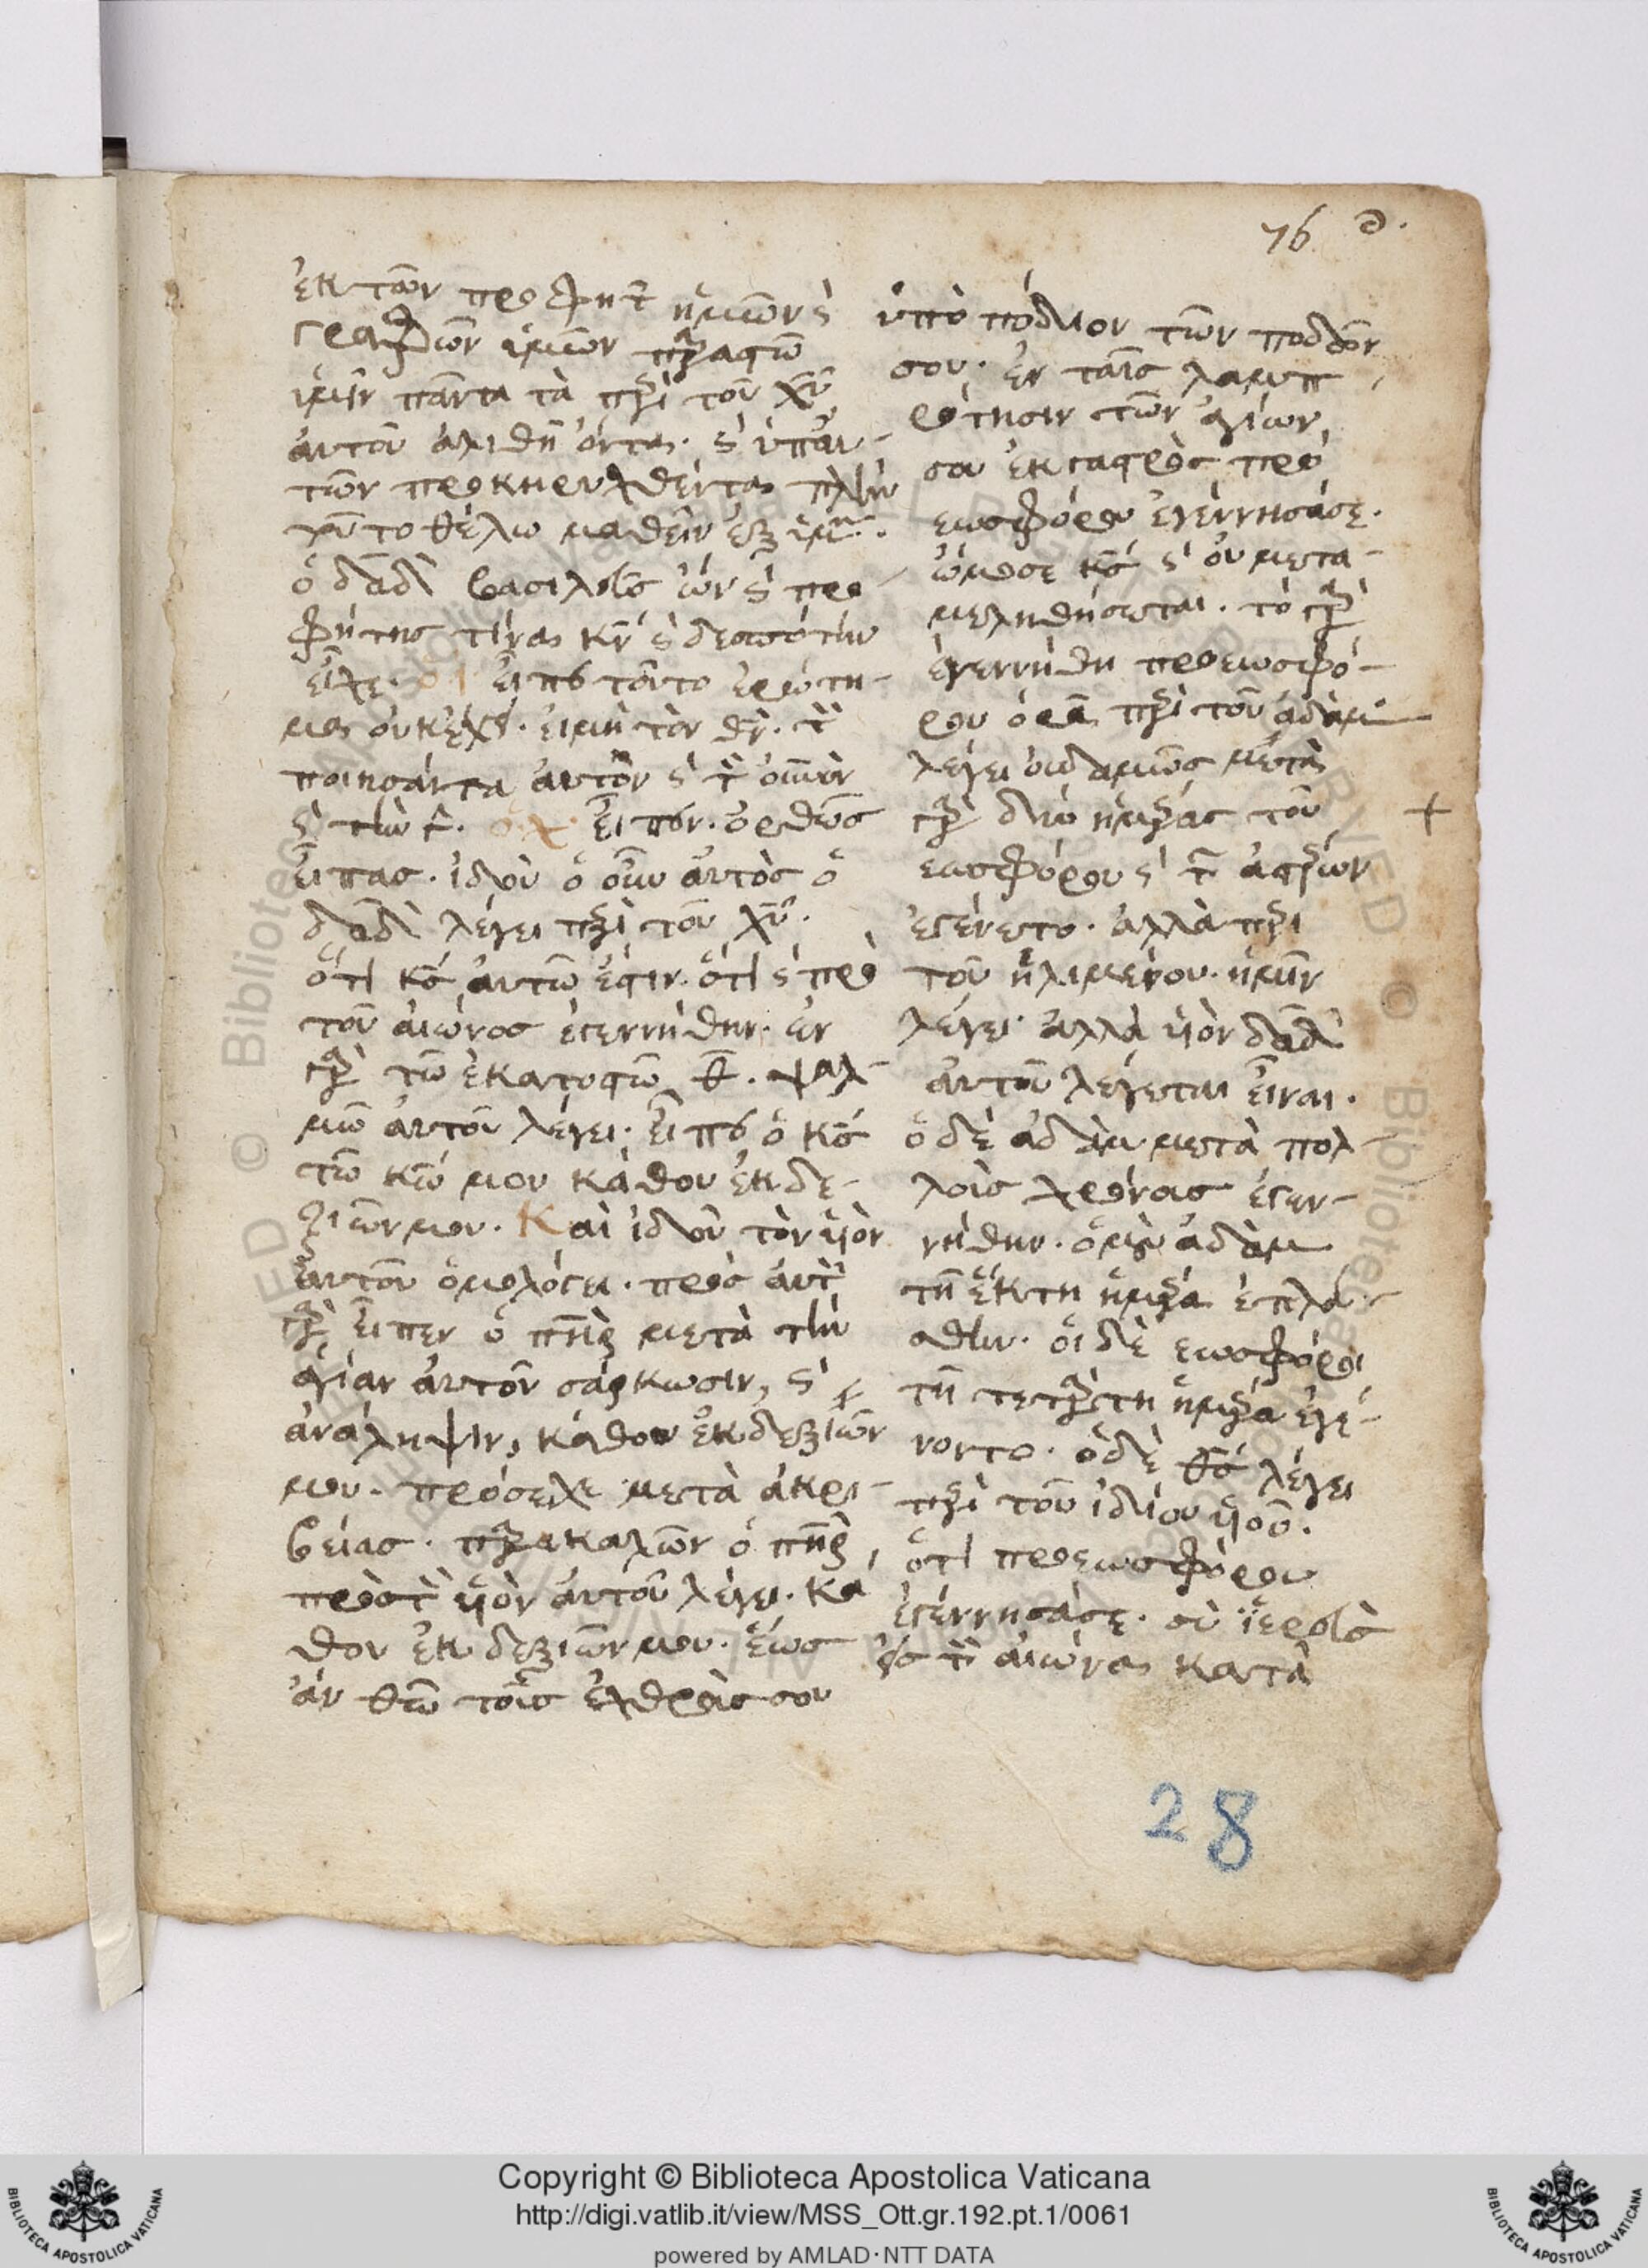 76 ∂.
ἐκ τῶν προφητ ἡμῶν ϛ
γραφῶν ὑμῶν παραστῶ
ὑμῖν πάντα τὰ περὶ τοῦ χυ
αὐτοῦ ἀλιθῆ ὄντα. ϛ ὑπάν-
των προκηρυχθέντα πλὴν
τοῦτο θέλω μαθεῖν ἐξ ὑμ.
ὁ δαδ βασιλεὺς ὢν ϛ προ
φήτης τίνα κν ϛ δεσπότην
εἶχε. οἱ ἰ εἶπον τοῦτο ἐρώτη-
μα οὐκ ἔχει. εἰμὴ τὸν θν. τὸν
ποιησάντα αὐτὸν ϛ τὸν οὐνον
ϛ τὴν γ. ὁ χ. εἶπεν. ὀρθῶς
εἶπας. ἰδοὺ ὁ οὖν αὐτὸς ὁ
δαδ λέγει περὶ τοῦ χυ.
ὅτι κς αὐτῶ ἐστιν. ὅτι ϛ προ
τοῦ αἰῶνος ἐγεννήθην. ἐν
γὰρ τῶ ἑκατοστῶ θ. ψαλ-
μῶ αὐτοῦ λέγει. εἶπεν ὁ κς
τῶ κω μου κάθου ἐκ δε-
ξιῶν μου. Καὶ ἰδοὺ τὸν υἱὸν
ἑαυτοῦ ὁμολόγει. πρὸς αὐτὸν
γὰρ εἶπεν ὁ πηρ μετὰ τὴν
ἁγίαν αὐτοῦ σάρκωσιν, ϛ
ἀνάληψιν, κάθου ἐκ δεξιῶν
μου. πρόσεχε μετὰ ἀκρι-
βείας. παρακαλῶν ὁ πηρ
πρὸς τὸν υἱὸν αὐτοῦ λέγει. κά
θου ἐκ δεξιῶν μου. ἕως
ἂν θῶ τοὺς ἐχθροὺς σου
ὑπὸ πόδιον τῶν ποδδῶν
σου. ἐν ταῖς λαμπ
ρότησιν τῶν ἁγίων
σου ἐκ γαστρὸς πρὸ
εωσφόρου ἐγέννησάσε.
ὤμοσε κς ϛ οὐ μετα-
μεληθήσεται. τὸ γὰρ
ἐγεννήθη πρὸ εωσφό-
ρου ὁρᾶ περὶ τοῦ ἀδὰμ
λέγει οὐδαμῶς μετὰ
γὰρ δύο ἡμέρας τοῦ
εωσφόρου ϛ τῶν ἀστέρων
ἐγένετο. ἀλλὰ περὶ
τοῦ ἠλιμένου. ἡμῖν
λέγει. ἀλλὰ υἱὸν δαδ
αὐτοῦ λέγεται εἶναι.
ὁ δὲ ἀδὰμ μετὰ πολ-
λοὺς χρόνους ἐγεν-
νήθην. ὁ μὲν ἀδὰμ
τῆ ἕκτη ἡμέρα ἐπλά-
σθην. οἱ δὲ εωσφόροι
τῆ τετάρτη ἡμέρα ἐγέ-
νοντο. ὁ δὲ θς λέγει
περὶ τοῦ ἰδίου υἱοῦ.
ὅτι πρὸ εωσφόρου
ἐγέννησάσε. σὺ ἱερεὺς
εἰς τὸν αἰῶνα κατὰ
28
Copyright © Biblioteca Apostolica Vaticana
http://digi.vatlib.it/view/MSS_Ott.gr.192.pt.1/0061
powered by AMLAD·NTT DATA
BIBLIOTECA APOSTOLICA VATICANA
BIBLIOTECA APOSTOLICA VATICANA